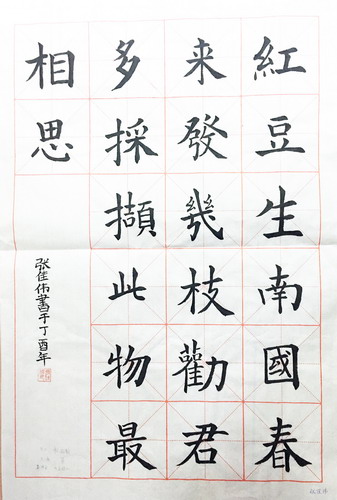 紅豆生南國春
来發幾枝勸君
多採擷此物最
相思
张佳伟書于丁酉年